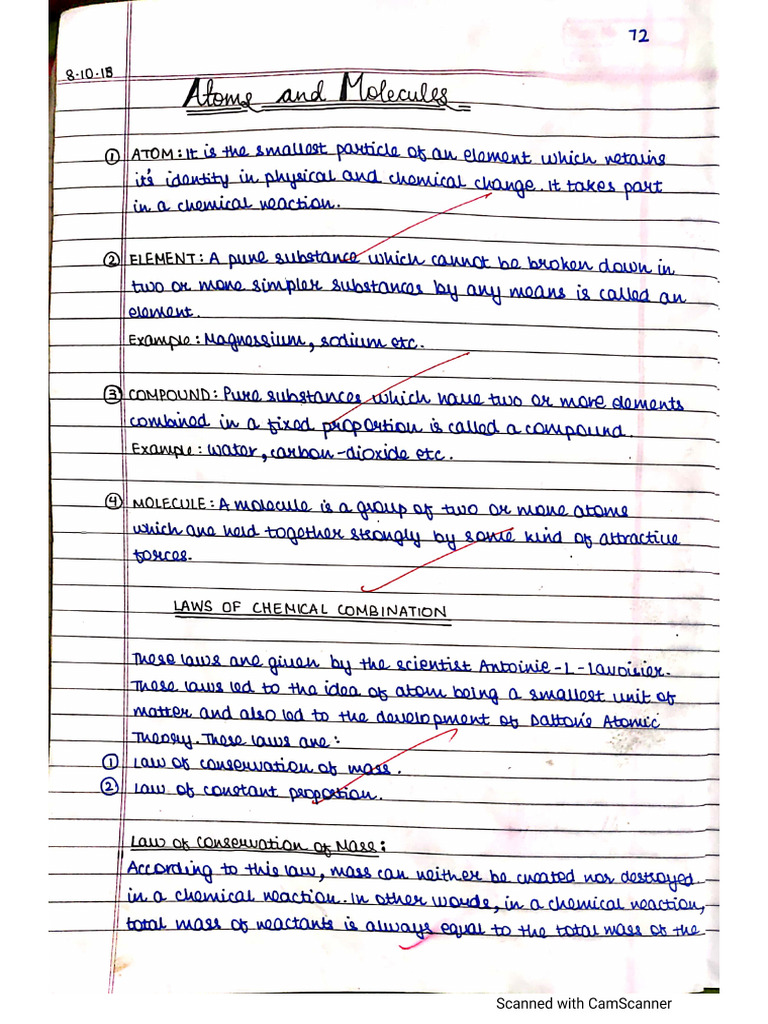 72
8.10.18
Atoms and Molecules
① ATOM: It is the smallest particle of an element which retains
it's identity in physical and chemical change. It takes part
in a chemical reaction.
② ELEMENT: A pure substance which cannot be broken down in
two or more simpler substances by any means is called an
element.
Example: Magnessium, sodium etc.
③ COMPOUND: Pure substances which have two or more elements
combined in a fixed proportion is called a compound.
Example: water, carbon-dioxide etc.
④ MOLECULE: A molecule is a group of two or more atoms
which are held together strongly by some kind of attractive
forces.
LAWS OF CHEMICAL COMBINATION
These laws are given by the scientist Antoinie-L-lavoisier.
These laws led to the idea of atom being a smallest unit of
matter and also led to the development of Dalton's Atomic
Theory. These laws are:
① Law of conservation of mass.
② Law of constant proportion.
Law of Conservation of Mass:
According to this law, mass can neither be created nor destroyed
in a chemical reaction. In other words, in a chemical reaction,
total mass of reactants is always equal to the total mass of the
Scanned with CamScanner